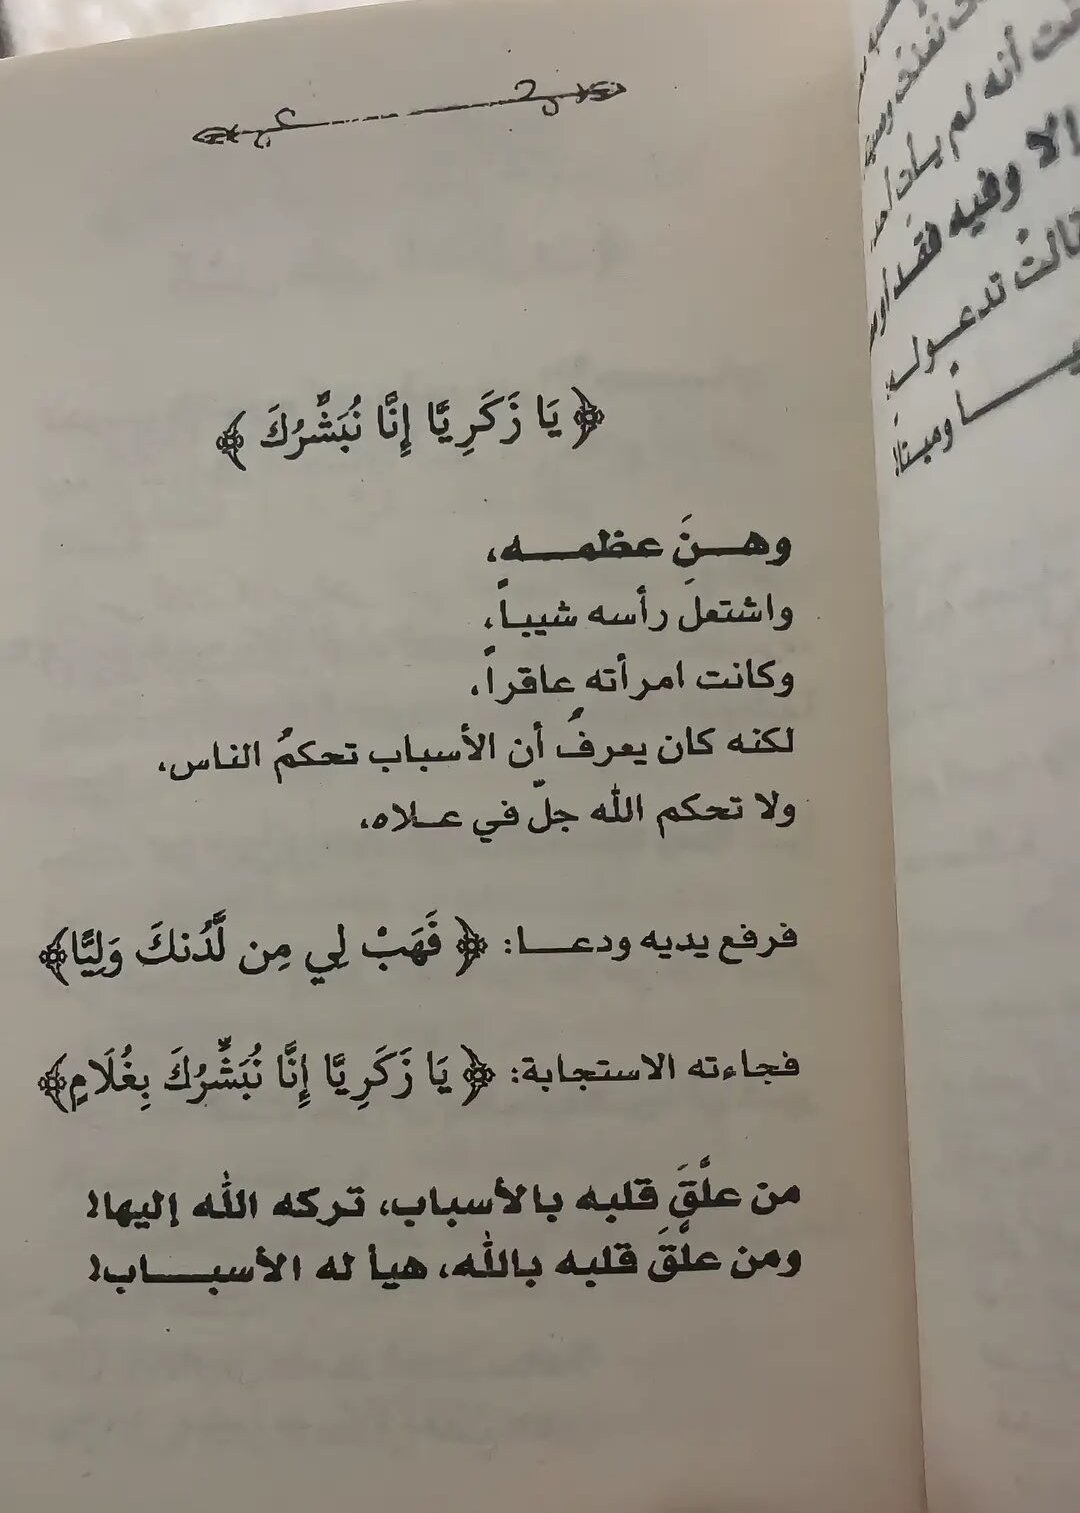 ﴿ يَا زَكَرِيَّا إِنَّا نُبَشِّرُكَ ﴾
وهـنَ عظمـه،
واشتعلَ رأسه شيباً،
وكانت امرأته عاقراً،
لكنه كان يعرفُ أن الأسباب تحكمُ الناس،
ولا تحكم الله جلّ في عـلاه،
فرفع يديه ودعـا: ﴿ فَهَبْ لِي مِن لَّدُنكَ وَلِيًّا﴾
فجاءته الاستجابة: ﴿ يَا زَكَرِيَّا إِنَّا نُبَشِّرُكَ بِغُلَامٍ﴾
من علَّقَ قلبه بالأسباب، تركه الله إليها!
ومن علَّقَ قلبه بالله، هيأ له الأسبـاب!
أنه لم يأت
إلا وفيه فقد
قالت تدعو